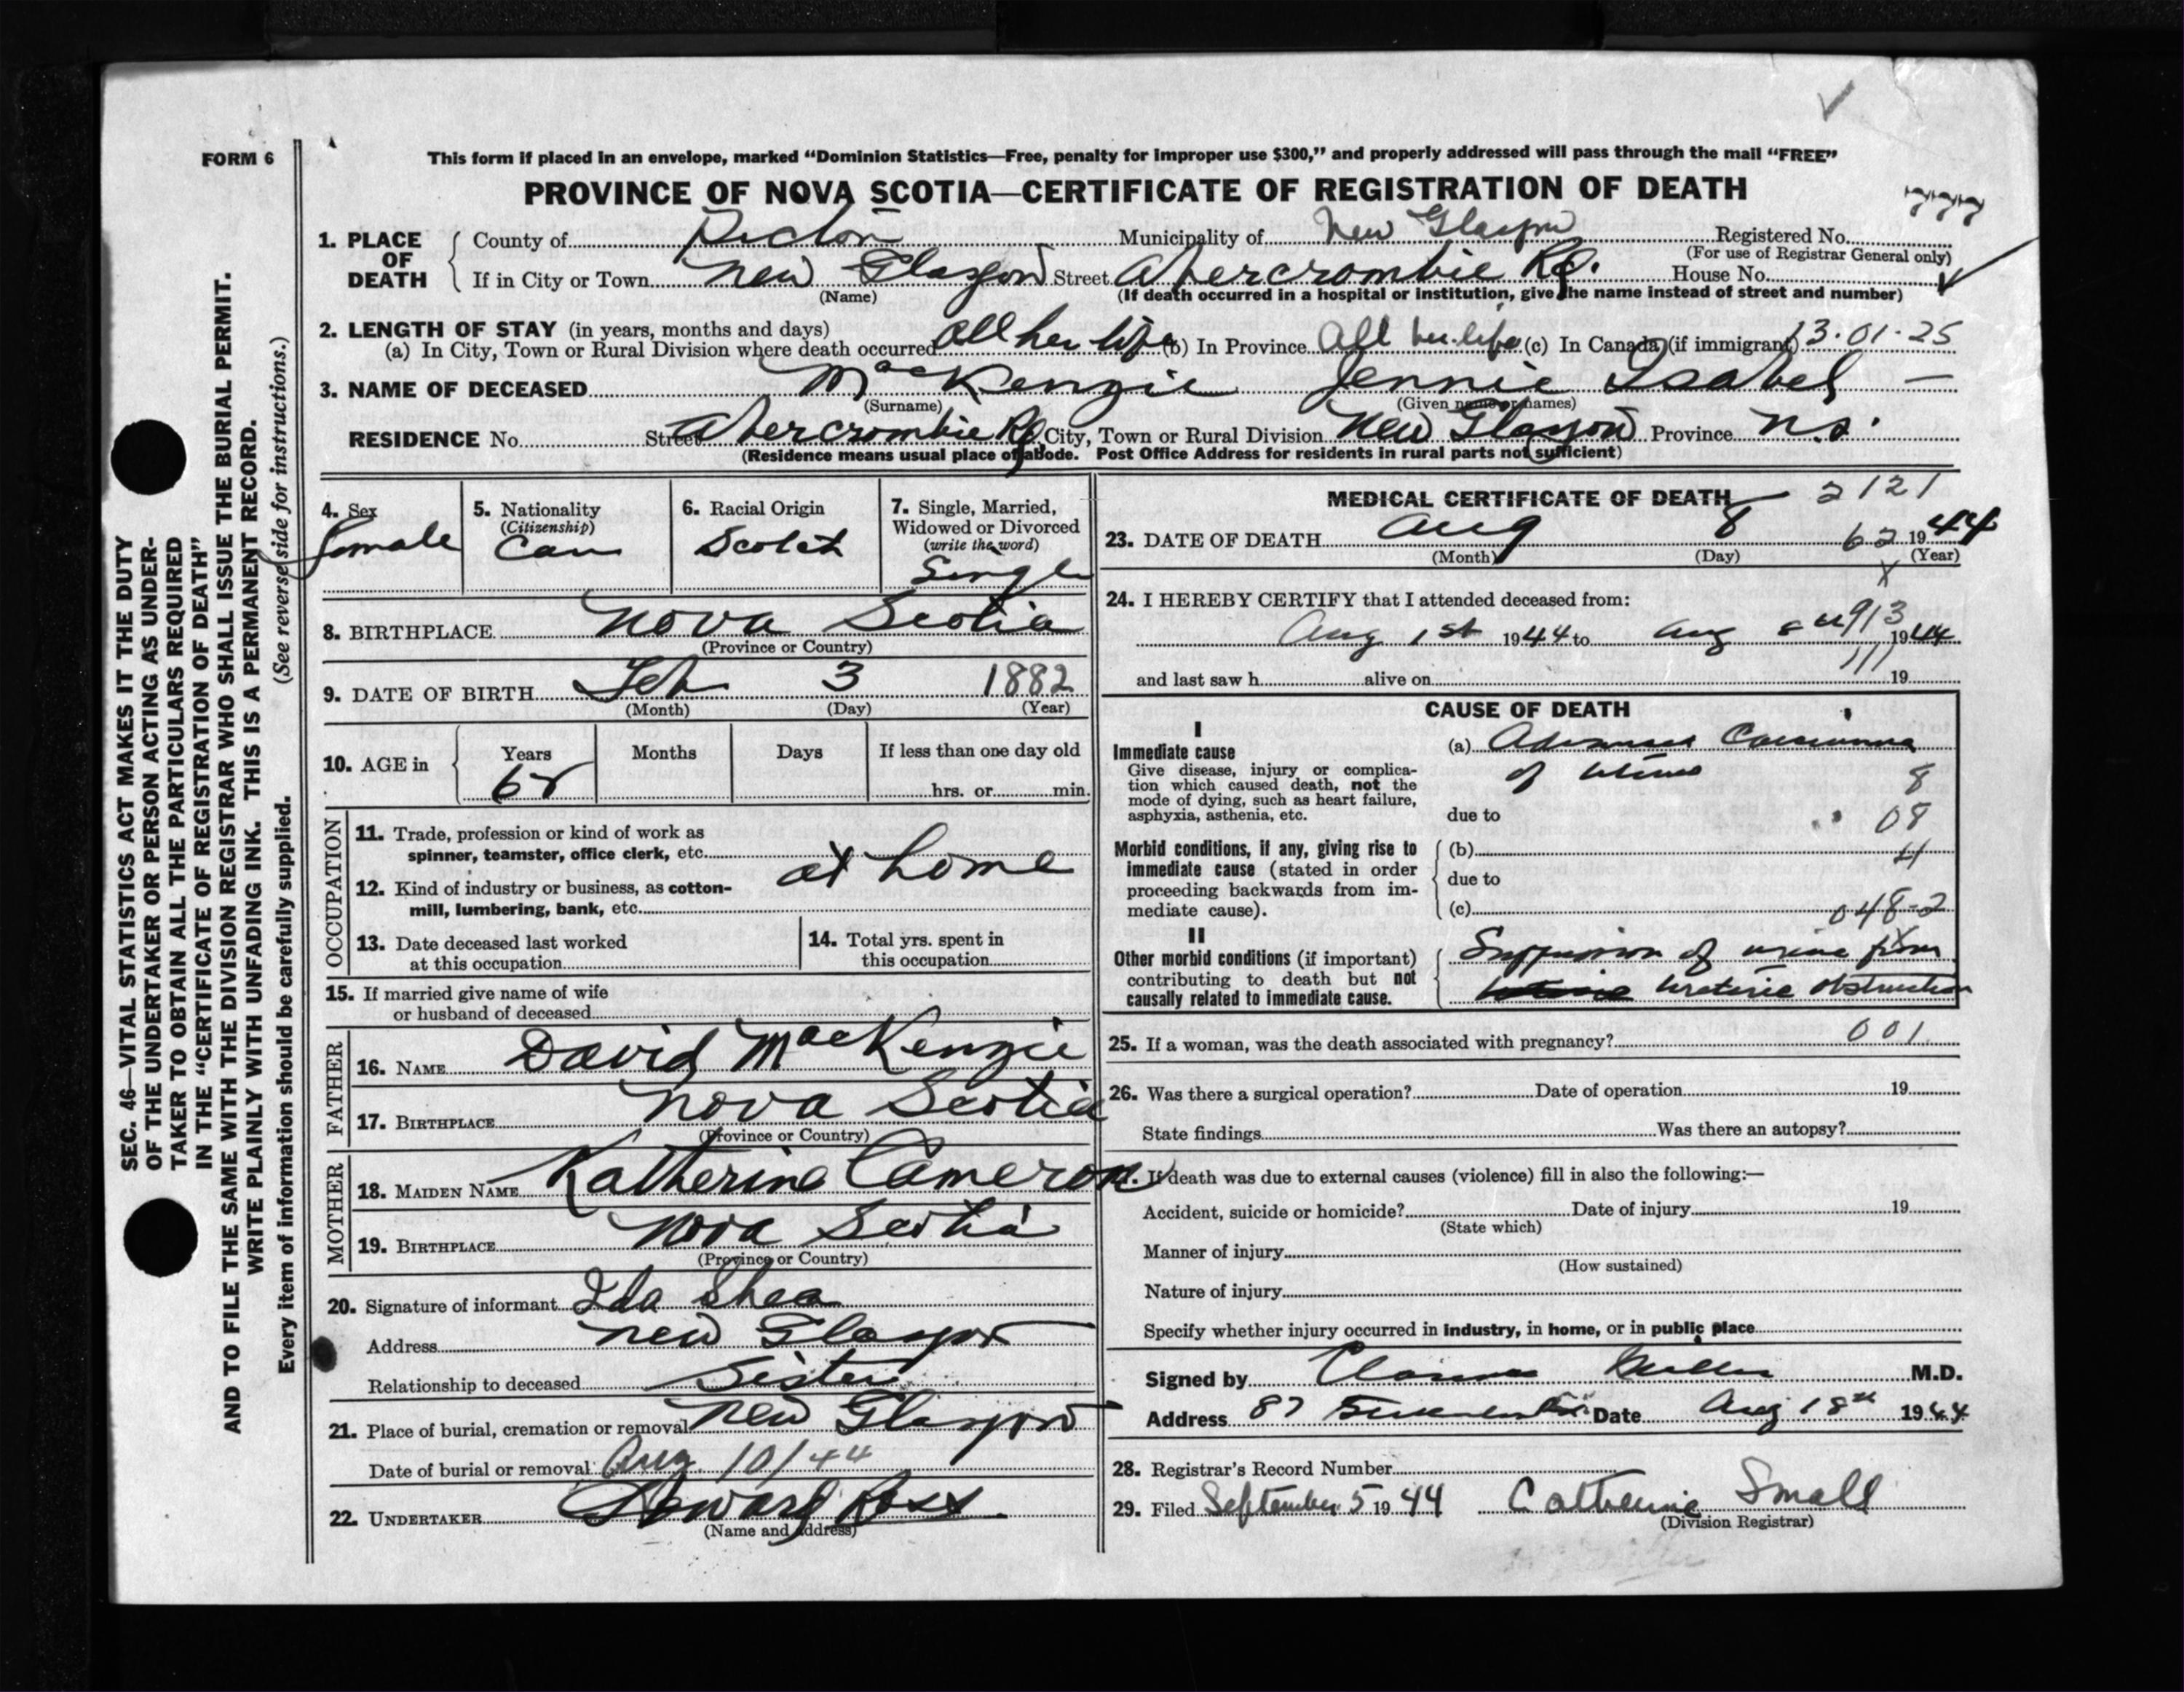 FORM 6
This form if placed in an envelope, marked “Dominion Statistics—Free, penalty for improper use $300,” and properly addressed will pass through the mail “FREE”
PROVINCE OF NOVA SCOTIA—CERTIFICATE OF REGISTRATION OF DEATH
777
1. PLACE OF DEATH County of Pictou Municipality of New Glasgow Registered No.
(For use of Registrar General only)
If in City or Town New Glasgow Street Abercrombie Rd. House No.
(Name) (If death occurred in a hospital or institution, give the name instead of street and number)
2. LENGTH OF STAY (in years, months and days)
(a) In City, Town or Rural Division where death occurred all her life (b) In Province All her life (c) In Canada (if immigrant) 13.01.25
3. NAME OF DECEASED MacKenzie Jennie Isabel —
(Surname) (Given name or names)
RESIDENCE No. Street Abercrombie Rd. City, Town or Rural Division New Glasgow Province N.S.
(Residence means usual place of abode. Post Office Address for residents in rural parts not sufficient)
4. Sex female
5. Nationality (Citizenship) Can
6. Racial Origin Scotch
7. Single, Married, Widowed or Divorced (write the word) Single
8. BIRTHPLACE Nova Scotia
(Province or Country)
9. DATE OF BIRTH Feb 3 1882
(Month) (Day) (Year)
10. AGE in Years Months Days If less than one day old
62 hrs. or min.
OCCUPATION
11. Trade, profession or kind of work as
spinner, teamster, office clerk, etc. at home
12. Kind of industry or business, as cotton-
mill, lumbering, bank, etc.
13. Date deceased last worked
at this occupation
14. Total yrs. spent in
this occupation
15. If married give name of wife
or husband of deceased
FATHER
16. NAME David MacKenzie
17. BIRTHPLACE Nova Scotia
(Province or Country)
MOTHER
18. MAIDEN NAME Katherine Cameron
19. BIRTHPLACE Nova Scotia
(Province or Country)
20. Signature of informant Ida Shea
Address New Glasgow
Relationship to deceased Sister
21. Place of burial, cremation or removal New Glasgow
Date of burial or removal Aug. 10/44
22. UNDERTAKER Ross
(Name and address)
MEDICAL CERTIFICATE OF DEATH 2121
23. DATE OF DEATH Aug 8 62 1944
(Month) (Day) (Year)
X
24. I HEREBY CERTIFY that I attended deceased from:
Aug 1st 1944 to Aug 8th 1944
913
111
and last saw h alive on 19
CAUSE OF DEATH
I
Immediate cause
Give disease, injury or complica-
tion which caused death, not the
mode of dying, such as heart failure,
asphyxia, asthenia, etc.
(a) Advanced Carcinoma
of Uterus 8
due to 08
Morbid conditions, if any, giving rise to
immediate cause (stated in order
proceeding backwards from im-
mediate cause).
(b) 4
due to
(c) 048-2
II
Other morbid conditions (if important)
contributing to death but not
causally related to immediate cause.
Suppression of urine from
ureteric obstruction
25. If a woman, was the death associated with pregnancy? 001
26. Was there a surgical operation? Date of operation 19
State findings Was there an autopsy?
If death was due to external causes (violence) fill in also the following:—
Accident, suicide or homicide? Date of injury 19
(State which)
Manner of injury
(How sustained)
Nature of injury
Specify whether injury occurred in industry, in home, or in public place
Signed by Clarence Miller M.D.
Address 87 Date Aug 18th 1944
28. Registrar's Record Number
29. Filed September 5 1944 Catherine Small
(Division Registrar)
SEC. 46—VITAL STATISTICS ACT MAKES IT THE DUTY
OF THE UNDERTAKER OR PERSON ACTING AS UNDER-
TAKER TO OBTAIN ALL THE PARTICULARS REQUIRED
IN THE “CERTIFICATE OF REGISTRATION OF DEATH”
AND TO FILE THE SAME WITH THE DIVISION REGISTRAR WHO SHALL ISSUE THE BURIAL PERMIT.
WRITE PLAINLY WITH UNFADING INK. THIS IS A PERMANENT RECORD.
Every item of information should be carefully supplied. (See reverse side for instructions.)